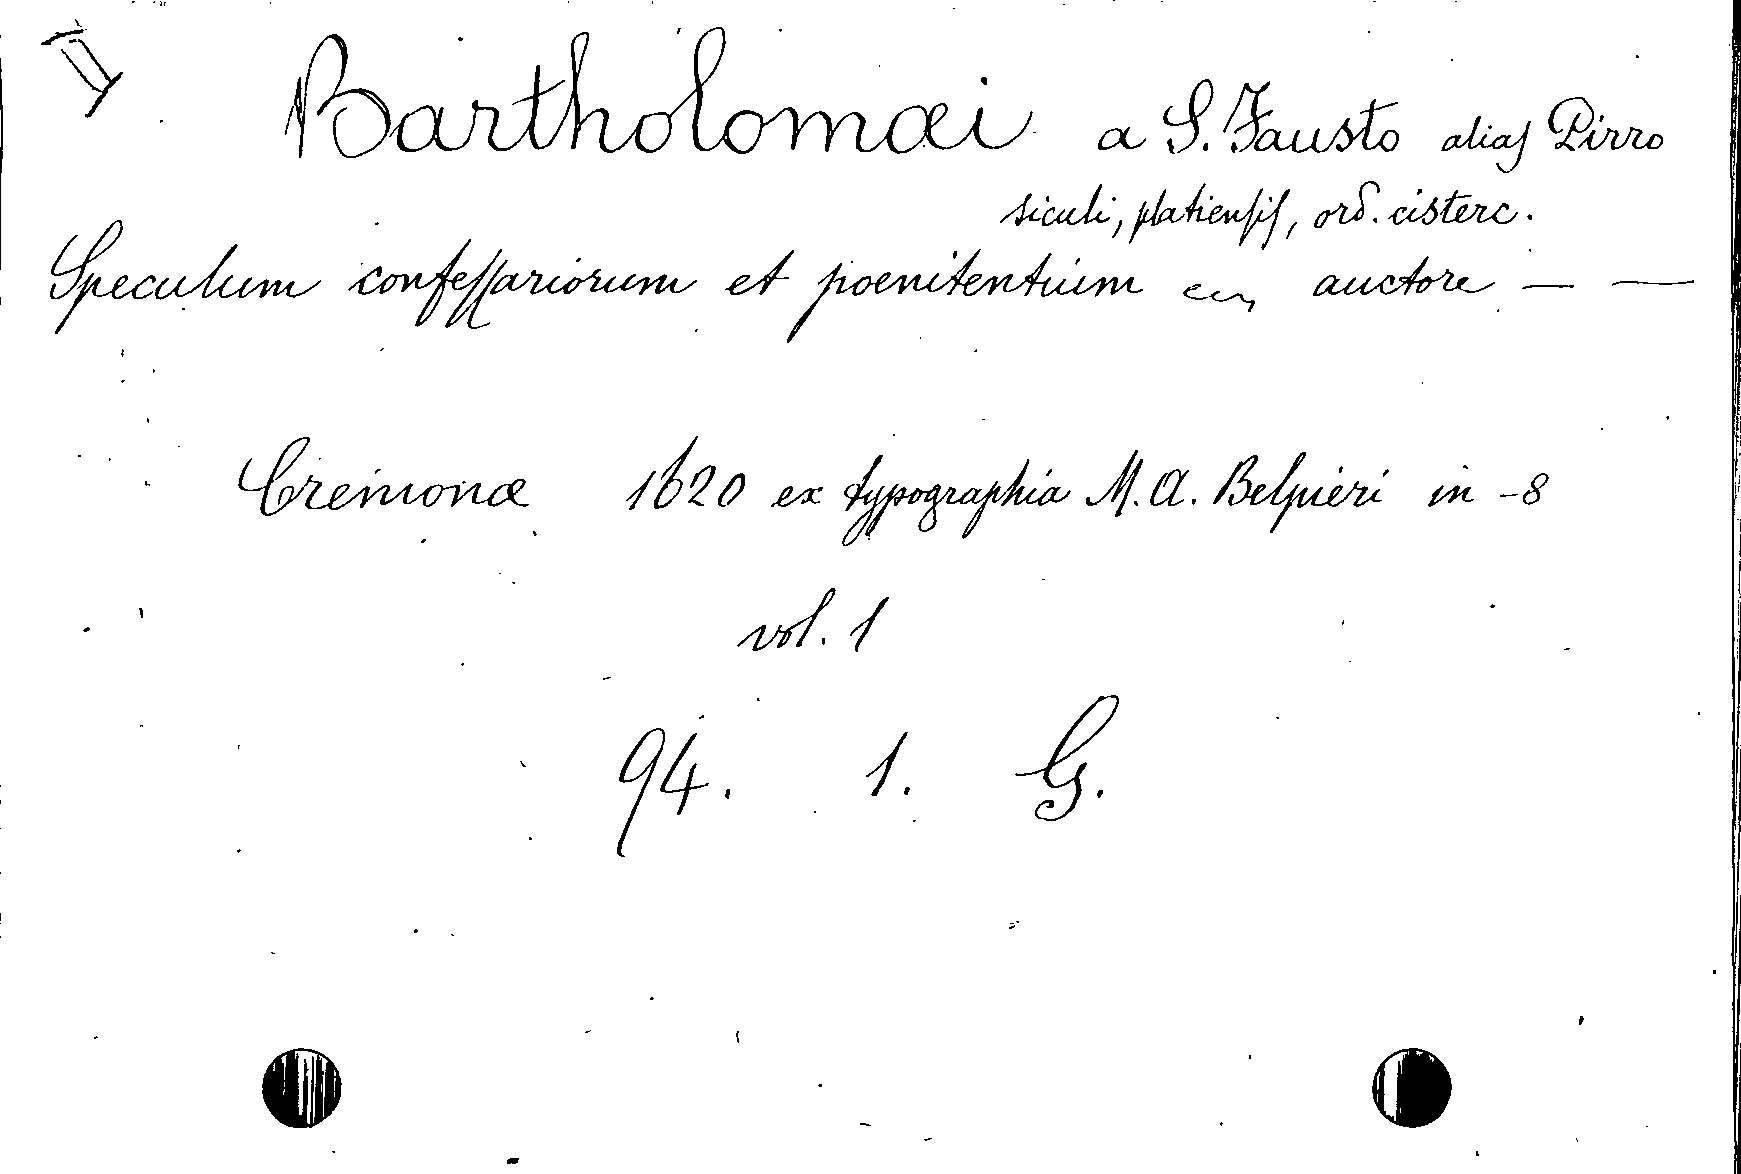 Bartholomæi a S. Fausto alias Pirro
siculi, platiensis, ord. cisterc.
Speculum confessariorum et poenitentium auctore — —
Cremonæ 1620 ex typographia M. A. Belpieri in -8
vol. 1
94. 1. G.